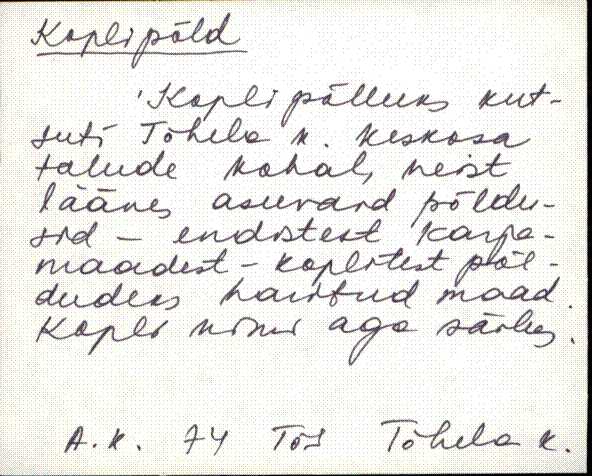 Koplipõld
Kopli põlluks kut-
suti Tõhela k. keskosa
talude kohal, neist
läänes asuvaid põldu-
sid - endistest karja-
maadest - koplitest põl-
dudeks haritud maad.
Kopli nimi aga säilus.
A.K. 74 Tõs Tõhela k.